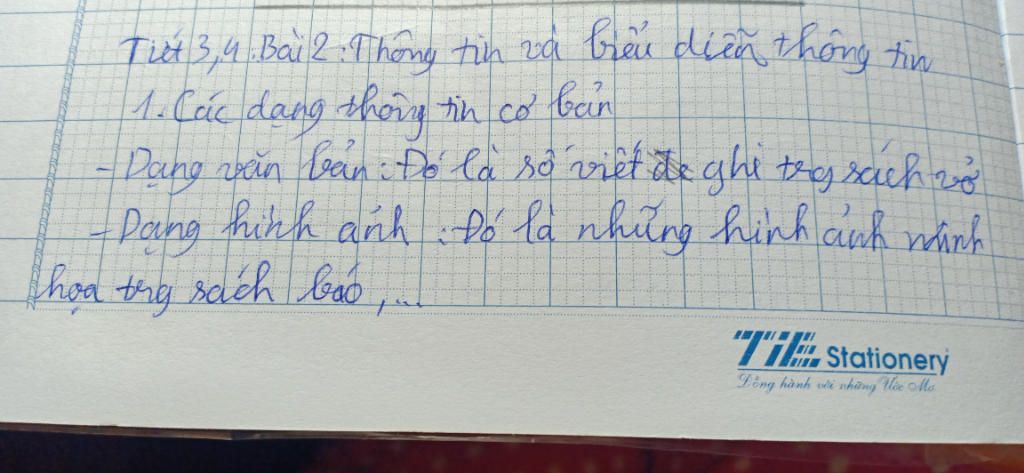 Tiết 3,4: Bài 2: Thông tin và biểu diễn thông tin
1. Các dạng thông tin cơ bản
- Dạng văn bản: Đó là số viết ghi trg sách vở
- Dạng hình ảnh: Đó là những hình ảnh minh
họa trg sách báo,...
TiE Stationery
Đồng hành với những Ước Mơ